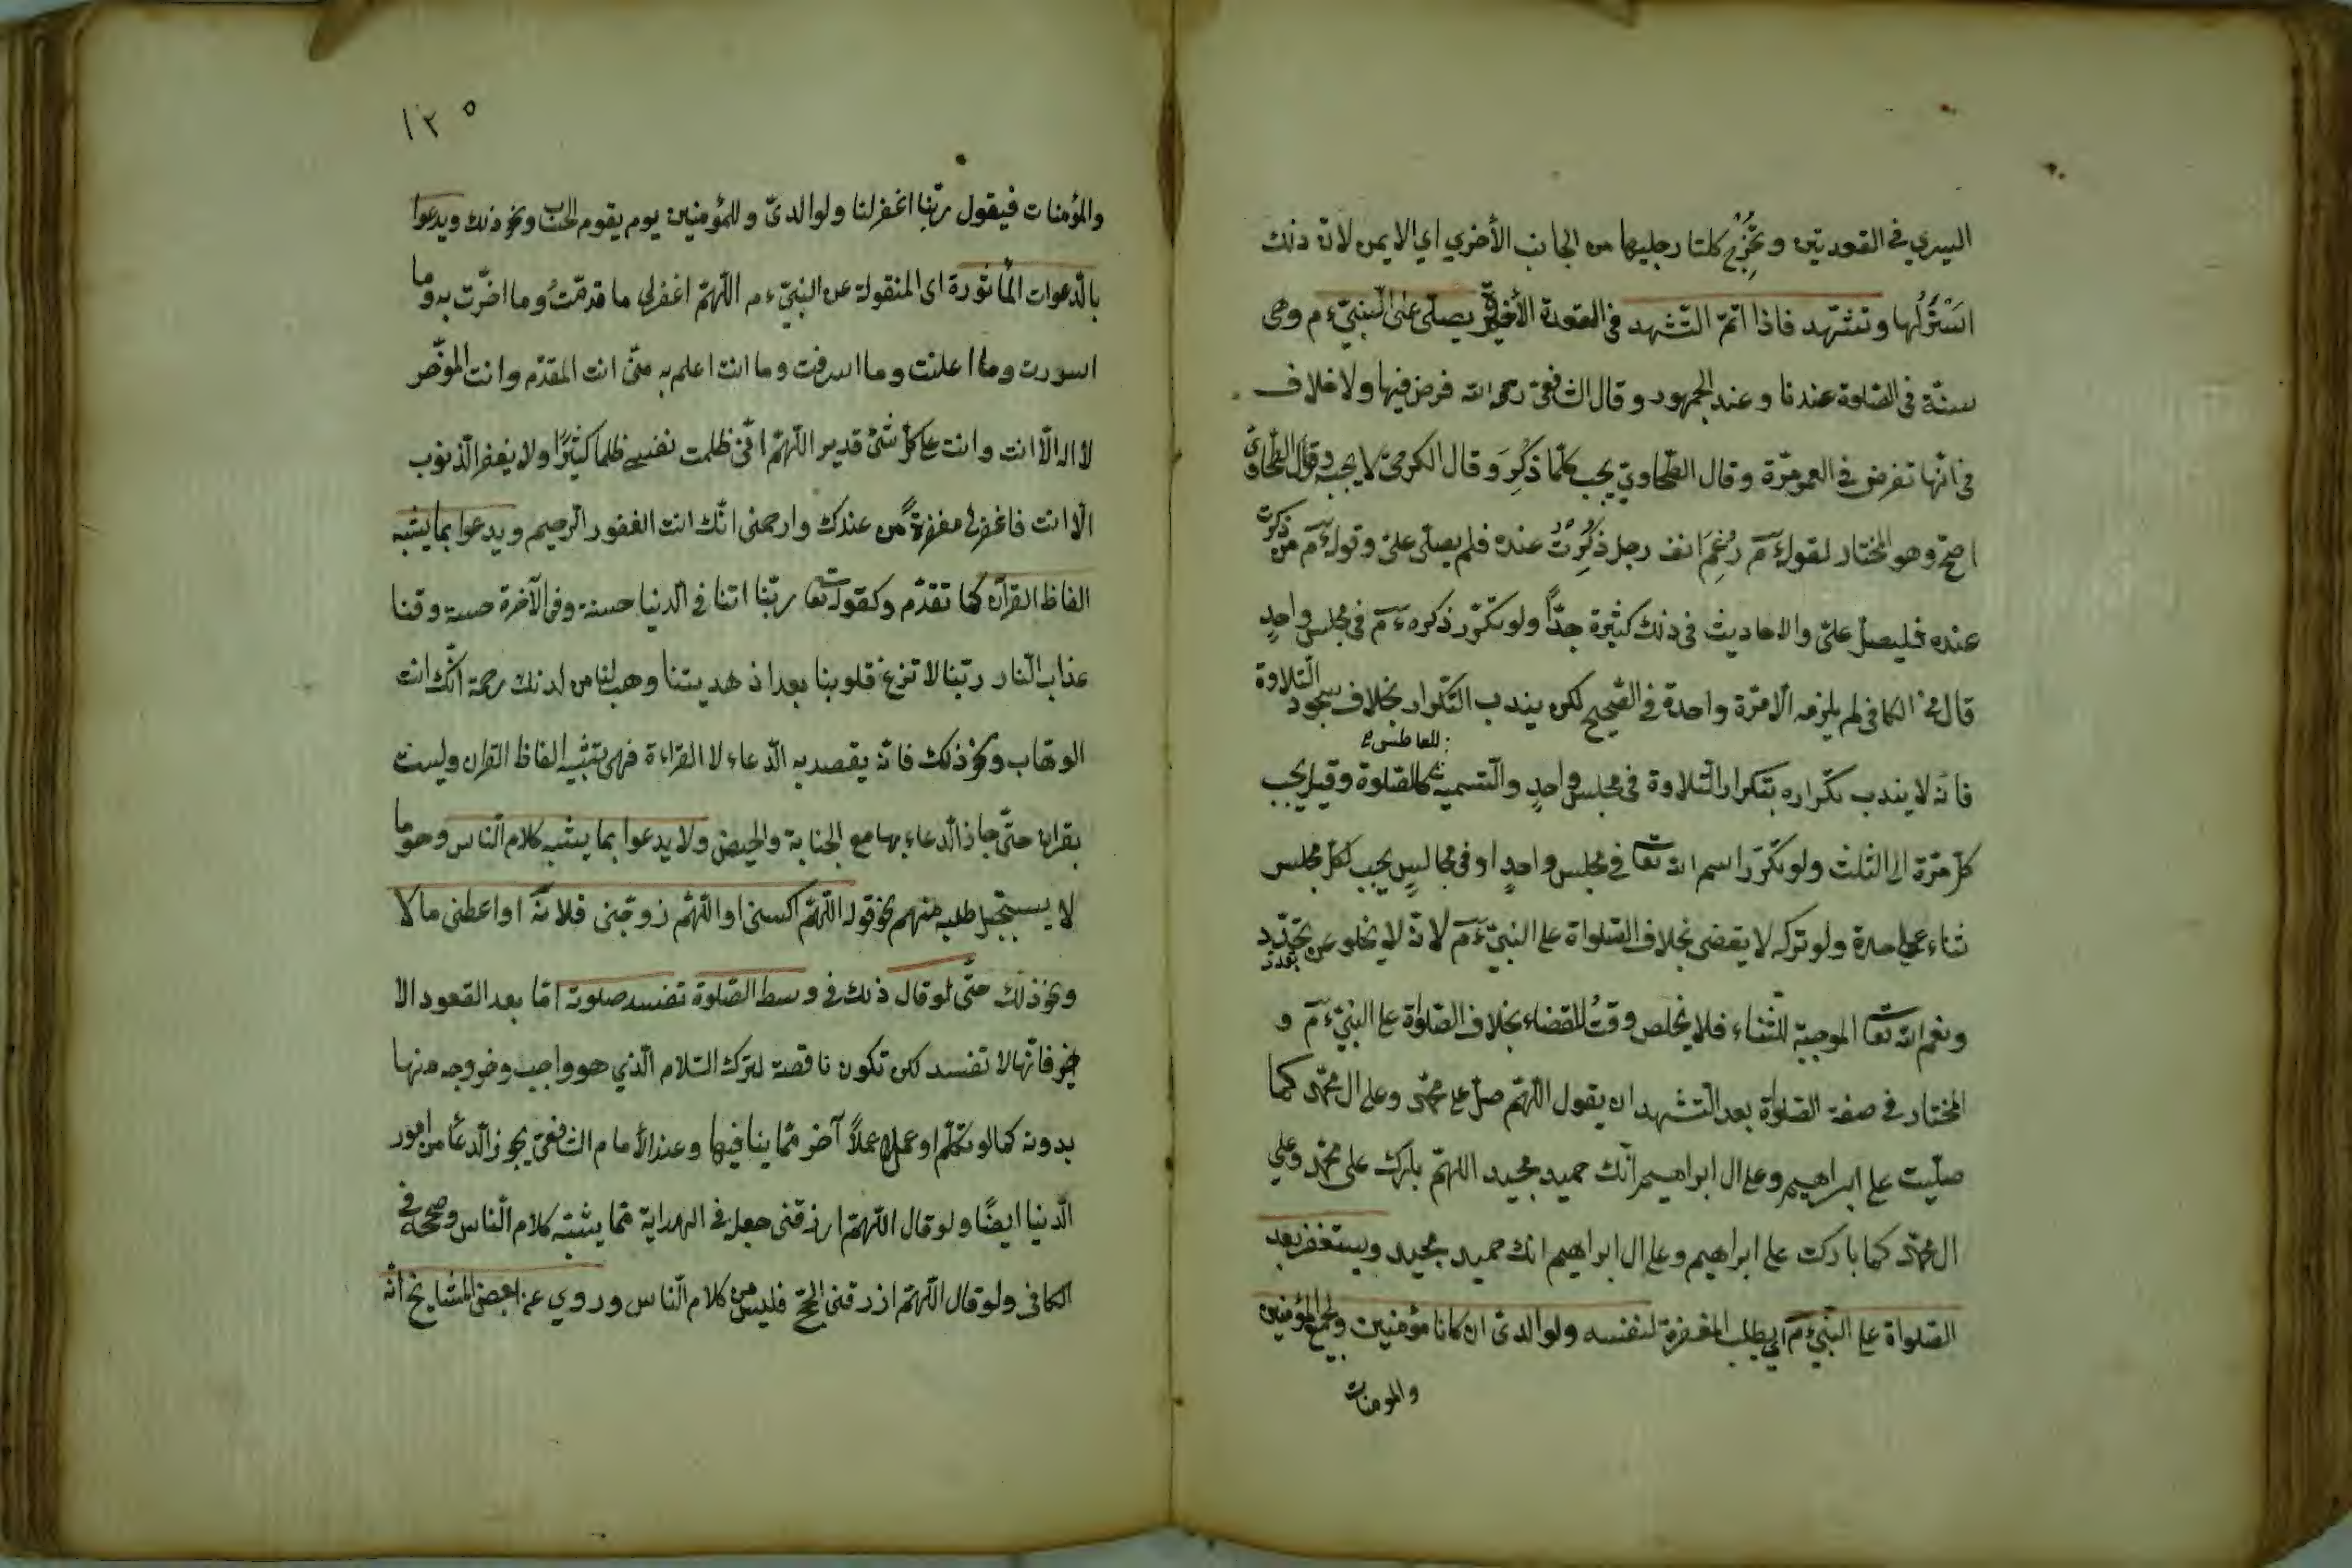 اليسري في القعدتين وتُخْرِج كلتا رجليها من الجانب الأخري اي الايمن لان ذلك
اَسْتَرُلها وتتشهّد فاذا اتمّ التّشهد في القعدة الأخيرة يصلّي على النبيّ ءم وهى
سنّة في الصّلوة عندنا وعند الجمهور وقال الشافعى رحمه الله فرض فيها ولا خلاف
في انّها تفرض في العمر مرّة وقال الطّحاوىّ يجب كلّما ذُكِرَ وقال الكرخىّ لا يجب وقول الطّحاوىّ
اصحّ وهو المختار لقوله ءم رُغِمَ انف رجل ذُكِرْتُ عنده فلم يصلّى علىّ وقوله ءم من ذكرت
عنده فليصلّ علىّ والاحاديث في ذلك كثيرة جدّاً ولو تكرّر ذكره ءم في مجلس واحدٍ
قال في الكافى لم يلزمه الّا مرّة واحدة في الصّحيح لكن يندب التّكرار بخلاف سجود التّلاوة
للعاطس
فانّه لا يندب تكراره بتكرار التّلاوة في مجلس واحدٍ والتّسمية كالصّلوة وقيل يجب
كلّ مرّة الى الثلث ولو تكرّر اسم الله تعا في مجلس واحدٍ او في مجالسٍ يجب لكلّ مجلس
ثناء على حدة ولو تركه لا يقضى بخلاف الصّلواة على النبيّ ءم لانّه لا يخلو عن تجدّد
ونعم الله تعا الموجبة للثّناء فلا يخلص وقتُ للقضاء بخلاف الصّلواة على النبيّ ءم و
المختار في صفة الصّلواة بعد التّشهد ان يقول اللّهمّ صلّ على محمّد وعلى ال محمّد كما
صلّيت على ابراهيم وعلى ال ابراهيم انّك حميد مجيد اللهمّ بارك على محمّد وعلي
ال محمّد كما باركت على ابراهيم وعلى ال ابراهيم انك حميد مجيد ويستغفر بعد
الصّلواة على النّبيّ ءم اي يطلب المغفرة لنفسه ولوالدىّ ان كانا مؤمنين ولجميع المؤمنين
والمومنات
١٢٥
والمؤمنات فيقول ربّنا اغفر لنا ولوالدىّ وللمؤمنين يوم يقوم الحساب ونحو ذلك ويدعوا
بالّدعوات المأثورة اى المنقولة عن النبيّ ءم اللّهمّ اغفرلى ما قدمّتُ وما اخّرت به وما
اسررت وما اعلنت وما اسرفت وما انت اعلم به منّى انت المقدّم وانت المؤخّر
لا اله الّا انت وانت على كلّ شئ قدير اللّهمّ انّى ظلمت نفسى ظلما كثيرًا ولا يغفر الّذنوب
الّا انت فاغفرلى مغفرةً من عندك وارحمنى انّك انت الغفور الّرحيم ويدعوا بما يشبه
الفاظ القرآن كما تقدّم وكقوله تعا ربّنا اتنا في الّدنيا حسنة وفى الآخرة حسنة وقنا
عذاب الّنار ربّنا لا تزغ قلوبنا بعد اذ هديتنا وهب لنا من لدنك رحمة انّك انت
الوهّاب ونحو ذلك فانّه يقصد به الدّعاء لا القراءة فهى تشبه الفاظ القران وليست
بقران حتّى جاز الّدعاء بها مع الجنابة والحيض ولا يدعوا بما يشبه كلام الّناس وهو ما
لا يستحيل طلبه منهم نحو قوله اللّهمّ اكسنى او اللّهمّ زوّجنى فلانة او اعطنى مالا
ونحو ذلك حتّى لو قال ذلك في وسط الصّلوة تفسد صلوته امّا بعد القعود الا
خير فانّها لا تفسد لكن تكون ناقصة لترك السّلام الّذي هو واجب وخروجه منها
بدونه كما لو تكلّم او عمل عملاً آخر ممّا ينافيها وعند الأمام الشافعىّ يجوز الّدعاء من امور
الّدنيا ايضًا ولو قال اللّهمّ ارزقنى جعله في الهداية ممّا يشبه كلام الّناس وصحّحه في
الكافى ولو قال اللّهمّ ارزقنى الحجّ فليس من كلام الّناس وروي عن بعض المشايخ انّه